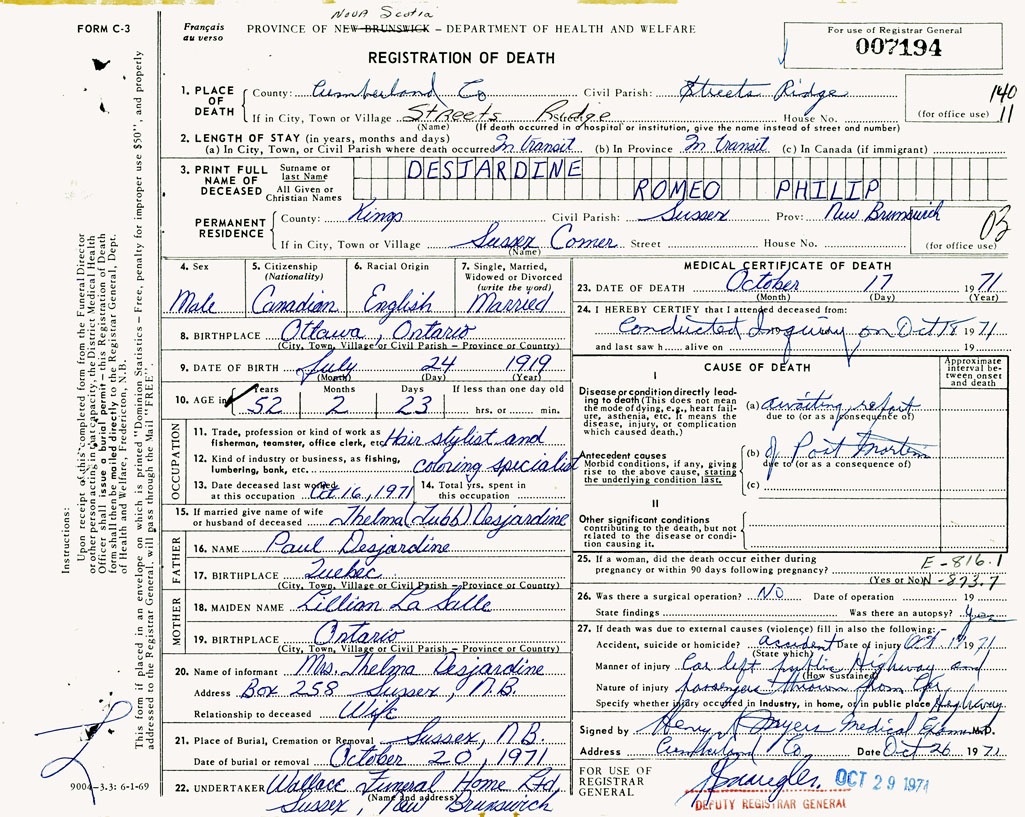 Nova Scotia
FORM C-3
Français
au verso
PROVINCE OF NEW BRUNSWICK – DEPARTMENT OF HEALTH AND WELFARE
For use of Registrar General
007194
REGISTRATION OF DEATH
1. PLACE OF DEATH
County: Cumberland Co Civil Parish: Streets Ridge
If in City, Town or Village Streets Ridge Street House No.
(Name) (If death occurred in a hospital or institution, give the name instead of street and number)
140
11
(for office use)
2. LENGTH OF STAY (in years, months and days)
(a) In City, Town, or Civil Parish where death occurred In transit (b) In Province In transit (c) In Canada (if immigrant)
3. PRINT FULL NAME OF DECEASED
Surname or last Name DESJARDINE
All Given or Christian Names ROMEO PHILIP
PERMANENT RESIDENCE
County: Kings Civil Parish: Sussex Prov: New Brunswick
If in City, Town or Village Sussex Corner Street House No.
(Name)
03
(for office use)
4. Sex
Male
5. Citizenship
(Nationality)
Canadian
6. Racial Origin
English
7. Single, Married, Widowed or Divorced
(write the word)
Married
8. BIRTHPLACE Ottawa, Ontario
(City, Town, Village or Civil Parish – Province or Country)
9. DATE OF BIRTH July 24 1919
(Month) (Day) (Year)
10. AGE in
Years Months Days If less than one day old
52 2 23 hrs. or min.
OCCUPATION
11. Trade, profession or kind of work as fisherman, teamster, office clerk, etc. Hair stylist and
12. Kind of industry or business, as fishing, lumbering, bank, etc. coloring specialist
13. Date deceased last worked at this occupation Oct 16, 1971
14. Total yrs. spent in this occupation
15. If married give name of wife or husband of deceased Thelma (Tubb) Desjardine
FATHER
16. NAME Paul Desjardine
17. BIRTHPLACE Quebec
(City, Town, Village or Civil Parish – Province or Country)
MOTHER
18. MAIDEN NAME Lillian La Salle
19. BIRTHPLACE Ontario
(City, Town, Village or Civil Parish – Province or Country)
20. Name of informant Mrs. Thelma Desjardine
Address Box 258 Sussex, N.B.
Relationship to deceased Wife
21. Place of Burial, Cremation or Removal Sussex, N.B.
Date of burial or removal October 20, 1971
22. UNDERTAKER Wallace Funeral Home Ltd,
(Name and address)
Sussex, New Brunswick
MEDICAL CERTIFICATE OF DEATH
23. DATE OF DEATH October 17 1971
(Month) (Day) (Year)
24. I HEREBY CERTIFY that I attended deceased from:
Conducted Inquiry on Oct 18 1971
and last saw h alive on 19
CAUSE OF DEATH
Approximate interval between onset and death
I
Disease or condition directly leading to death (This does not mean the mode of dying, e.g., heart failure, asthenia, etc. It means the disease, injury, or complication which caused death.)
(a) awaiting report
due to (or as a consequence of)
Antecedent causes
Morbid conditions, if any, giving rise to the above cause, stating the underlying condition last.
(b) of Post Mortem
due to (or as a consequence of)
(c)
II
Other significant conditions
contributing to the death, but not related to the disease or condition causing it.
25. If a woman, did the death occur either during pregnancy or within 90 days following pregnancy?
(Yes or No)
E-816.1
N-873.7
26. Was there a surgical operation? No Date of operation 19
State findings Was there an autopsy? Yes
27. If death was due to external causes (violence) fill in also the following:
Accident, suicide or homicide? accident Date of injury Oct 17 1971
(State which)
Manner of injury Car left public Highway and
(How sustained)
Nature of injury passengers thrown from Car
Specify whether injury occurred in Industry, in home, or in public place Highway
Signed by Henry Myers Medical M.D.
Address Cumberland Co. Date Oct 26 1971
FOR USE OF REGISTRAR GENERAL
OCT 29 1971
DEPUTY REGISTRAR GENERAL
Instructions:
Upon receipt of this completed form from the Funeral Director
or other person acting in that capacity, the District Medical Health
Officer shall issue a burial permit – this Registration of Death
form shall then be mailed directly to the Registrar General, Dept.
of Health and Welfare, Fredericton, N.B.
This form if placed in an envelope on which is printed "Dominion Statistics – Free, penalty for improper use $50", and properly
addressed to the Registrar General, will pass through the Mail "FREE".
9004-3.3: 6-1-69